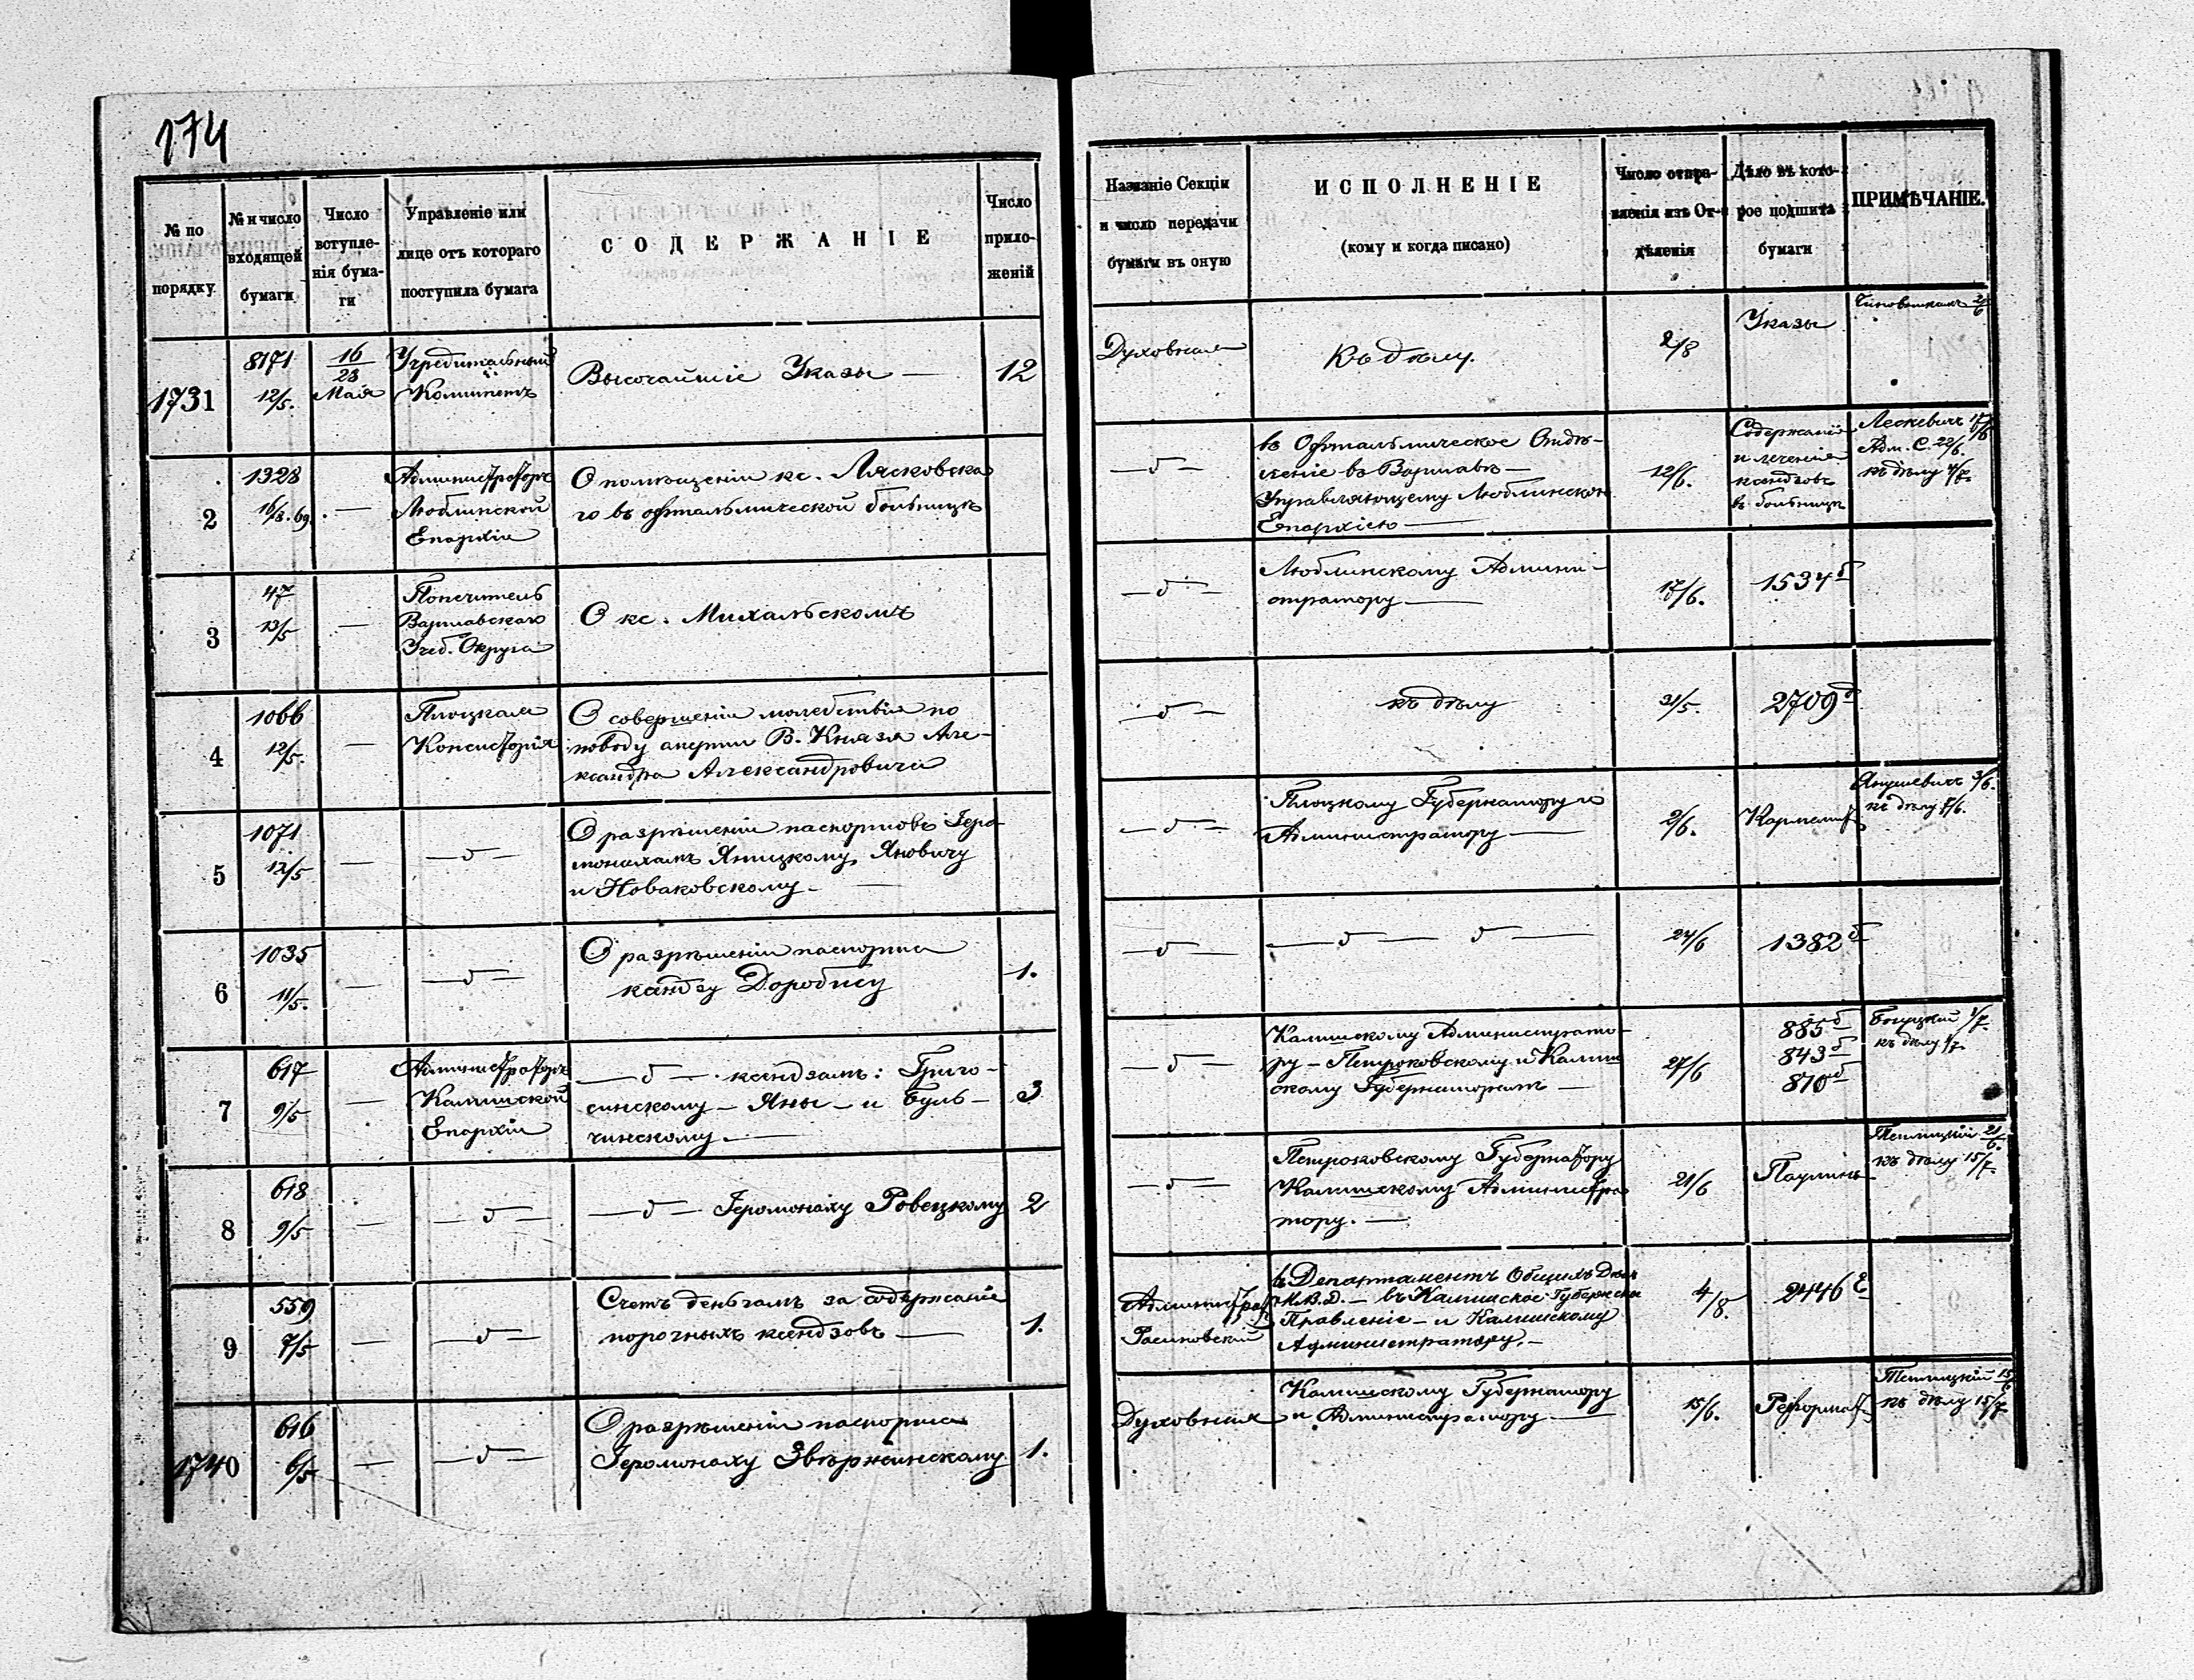 174
№ по порядку
№ и число входящей бумаги
Число вступле-нія бума-ги
Управленіе или лице отъ котораго поступила бумага
СОДЕРЖАНІЕ
Число прило-женій
Названіе Секціи и число передачи бумаги въ оную
ИСПОЛНЕНІЕ
(кому и когда писано)
Число отпра-вленія изъ От-дѣленія
Дѣло въ кото-рое подшита бумаги
ПРИМѢЧАНІЕ.
1731
8171
12/5.
16/28
Мая
Учредительный
Комитетъ
Высочайшіе Указы —
12
Духовная
Къ дѣлу.
2/8
Указы
2
1328
16/3.69.
—
Администраторъ
Люблинской
Епархіи
О помѣщеніи кс. Лясковска
го въ офтальмической больницѣ
— δ —
въ Офтальмическое Отдѣ-
леніе въ Варшавѣ —
Управляющему Люблинскою
Епархіею —
12/6.
Содержаніе
и леченіе
ксендзовъ
въ больницѣ
Лескевичъ 17/6
Адм. С. 22/6.
къ дѣлу 4/7.
3
47
13/5
—
Попечитель
Варшавскаго
Учеб. Округа
О кс. Михальскомъ
— δ —
Люблинскому Админи-
стратору —
17/6.
1534 б
4
1066
12/5.
—
Плоцкая
Консисторія
О совершеніи молебствія по
поводу смерти В. Князя Але-
ксандра Александровича
— δ —
къ дѣлу
31/5.
2709 б
5
1071
12/5
—
— δ —
О разрѣшеніи паспортовъ Іеро-
монахамъ Яницкому, Яновичу
и Новаковскому —
— δ —
Плоцкому Губернатору и
Администратору —
2/6.
Кармелит
Янушевичъ 3/6.
къ дѣлу 8/6.
6
1035
11/5.
—
— δ —
О разрѣшеніи паспорта
ксендзу Доробису
1.
— δ —
— δ — δ —
24/6
1382 б
7
617
9/5
—
Администраторъ
Калишской
Епархіи
— δ — ксендзамъ: Григо-
синскому — Яны — и Буль-
чинскому. —
3
— δ —
Калишскому Администрато-
ру — Петроковскому и Калиш
скому Губернаторамъ —
27/6
885 б
843 б
870 б
къ дѣлу
8
618
9/5
—
— δ —
— δ — Іеромонаху Ровецкому
2
— δ —
Петроковскому Губернатору
Калишскому Администра
тору. —
21/6
Паулинъ
Теплицкій 21/6.
къ дѣлу 15/7.
9
559
7/5
—
— δ —
Счетъ деньгамъ за содержаніе
порочныхъ ксендзовъ —
1.
Администрат
въ Департаментъ Общихъ Дѣлъ
М.В.Д. — въ Калишское Губернско
Правленіе — и Калишскому
Администратору. —
4/8.
2446 б
1740
616
6/5
—
— δ —
О разрѣшеніи паспорта
Іеромонаху Звѣржинскому
1.
Духовная
Калишскому Губернатору
и Администратору —
15/6.
Реформат
Теплицкій 15/6
къ дѣлу 15/7.